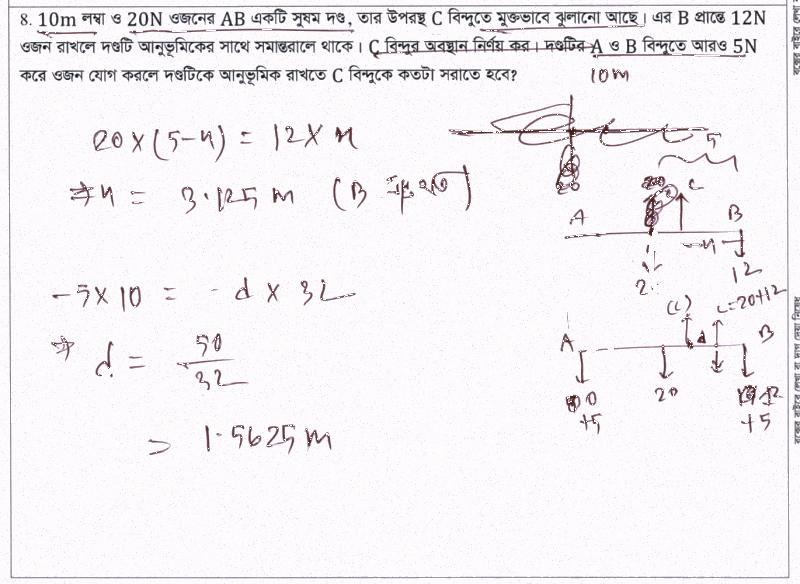 8. 10m লম্বা ও 20N ওজনের AB একটি সুষম দণ্ড, তার উপরস্থ C বিন্দুতে মুক্তভাবে ঝুলানো আছে। এর B প্রান্তে 12N
ওজন রাখলে দণ্ডটি আনুভূমিকের সাথে সমান্তরালে থাকে। C বিন্দুর অবস্থান নির্ণয় কর। দণ্ডটির A ও B বিন্দুতে আরও 5N
করে ওজন যোগ করলে দণ্ডটিকে আনুভূমিক রাখতে C বিন্দুকে কতটা সরাতে হবে?
10m
20×(5-x) = 12×x
⇒ x = 3.125 m (B
5
C
A B
x
12
-5×10 = -d × 32
C=20+12
(C)
A d B
⇒ d = 50/32
20 12
+5 +5
⇒ 1.5625 m